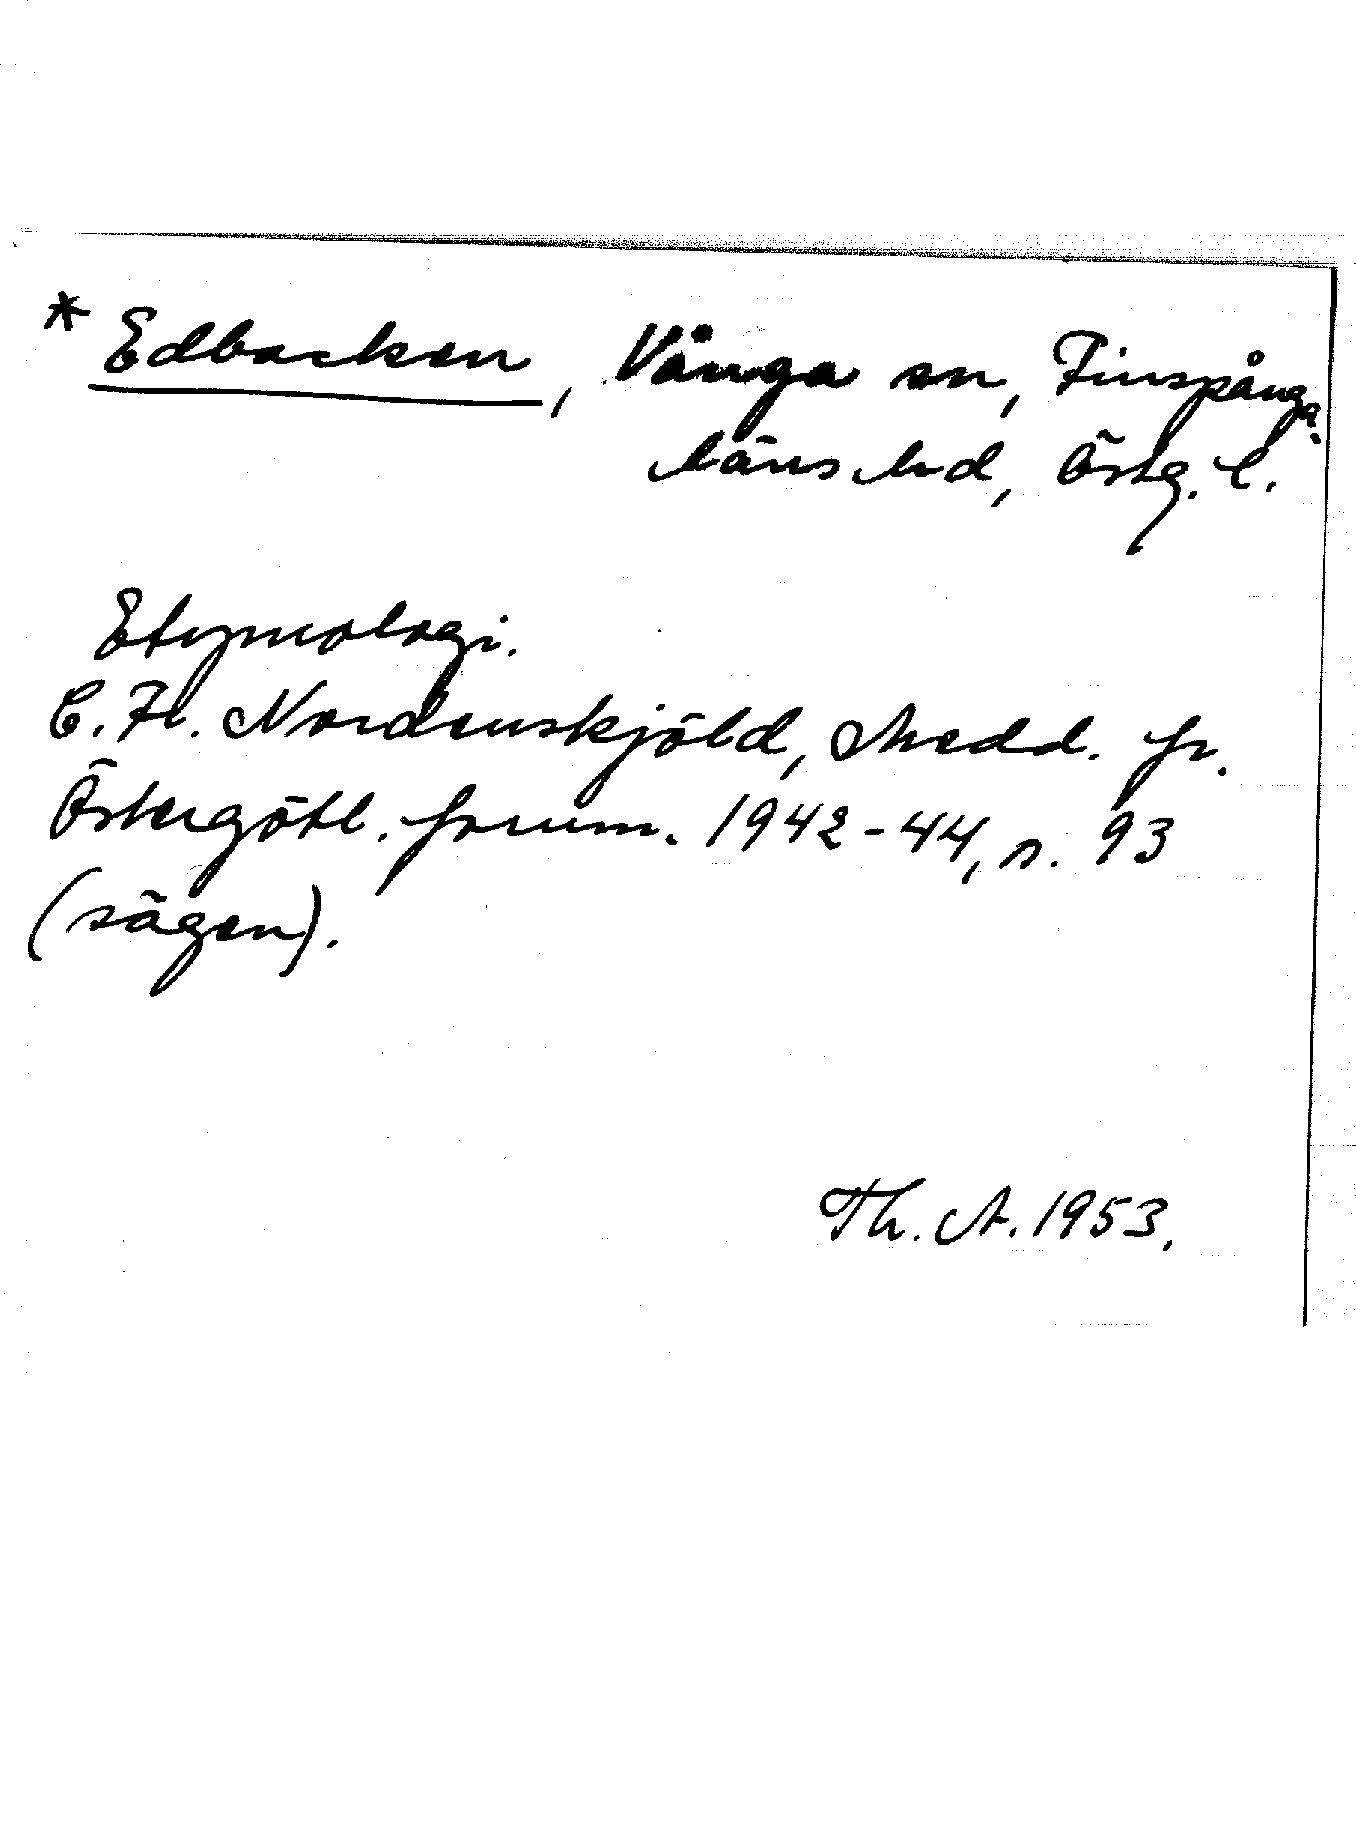 * Edbacken, Vånga sn, Finspånga
läns hd, Östg. l.
Etymologi.
C. Fr. Nordenskjöld, Medd. fr.
Östergötl. fornm. 1942-44, s. 93
(sägen).
Th. A. 1953.